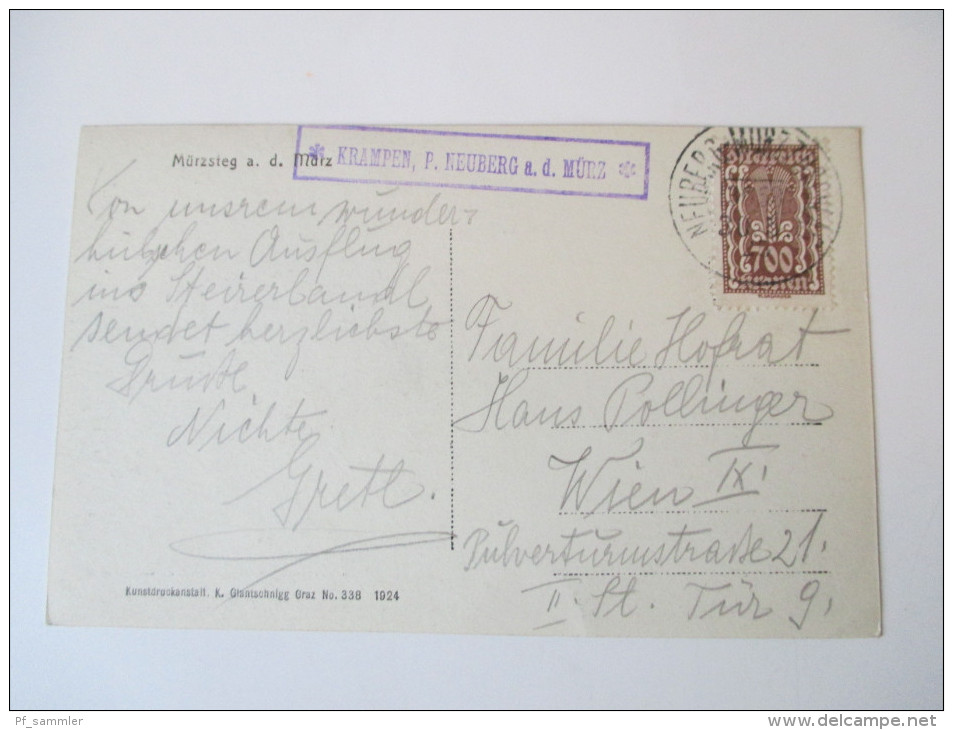 Mürzsteg a. d. Mürz
* KRAMPEN, P. NEUBERG a. d. MÜRZ *
NEUBERG
700
Von unsrem wunder-
hübschen Ausflug
ins Steirerlandl
sendet herzlichste
Grüße
Nichte
Gretl.
Familie Hofrat
Hans Pollinger
Wien IX.
Pulverturmstraße 21.
II. St. Tür 9.
Kunstdruckanstalt. K. Glantschnigg Graz No. 338 1924
Pf_sammler
www.delcampe.net